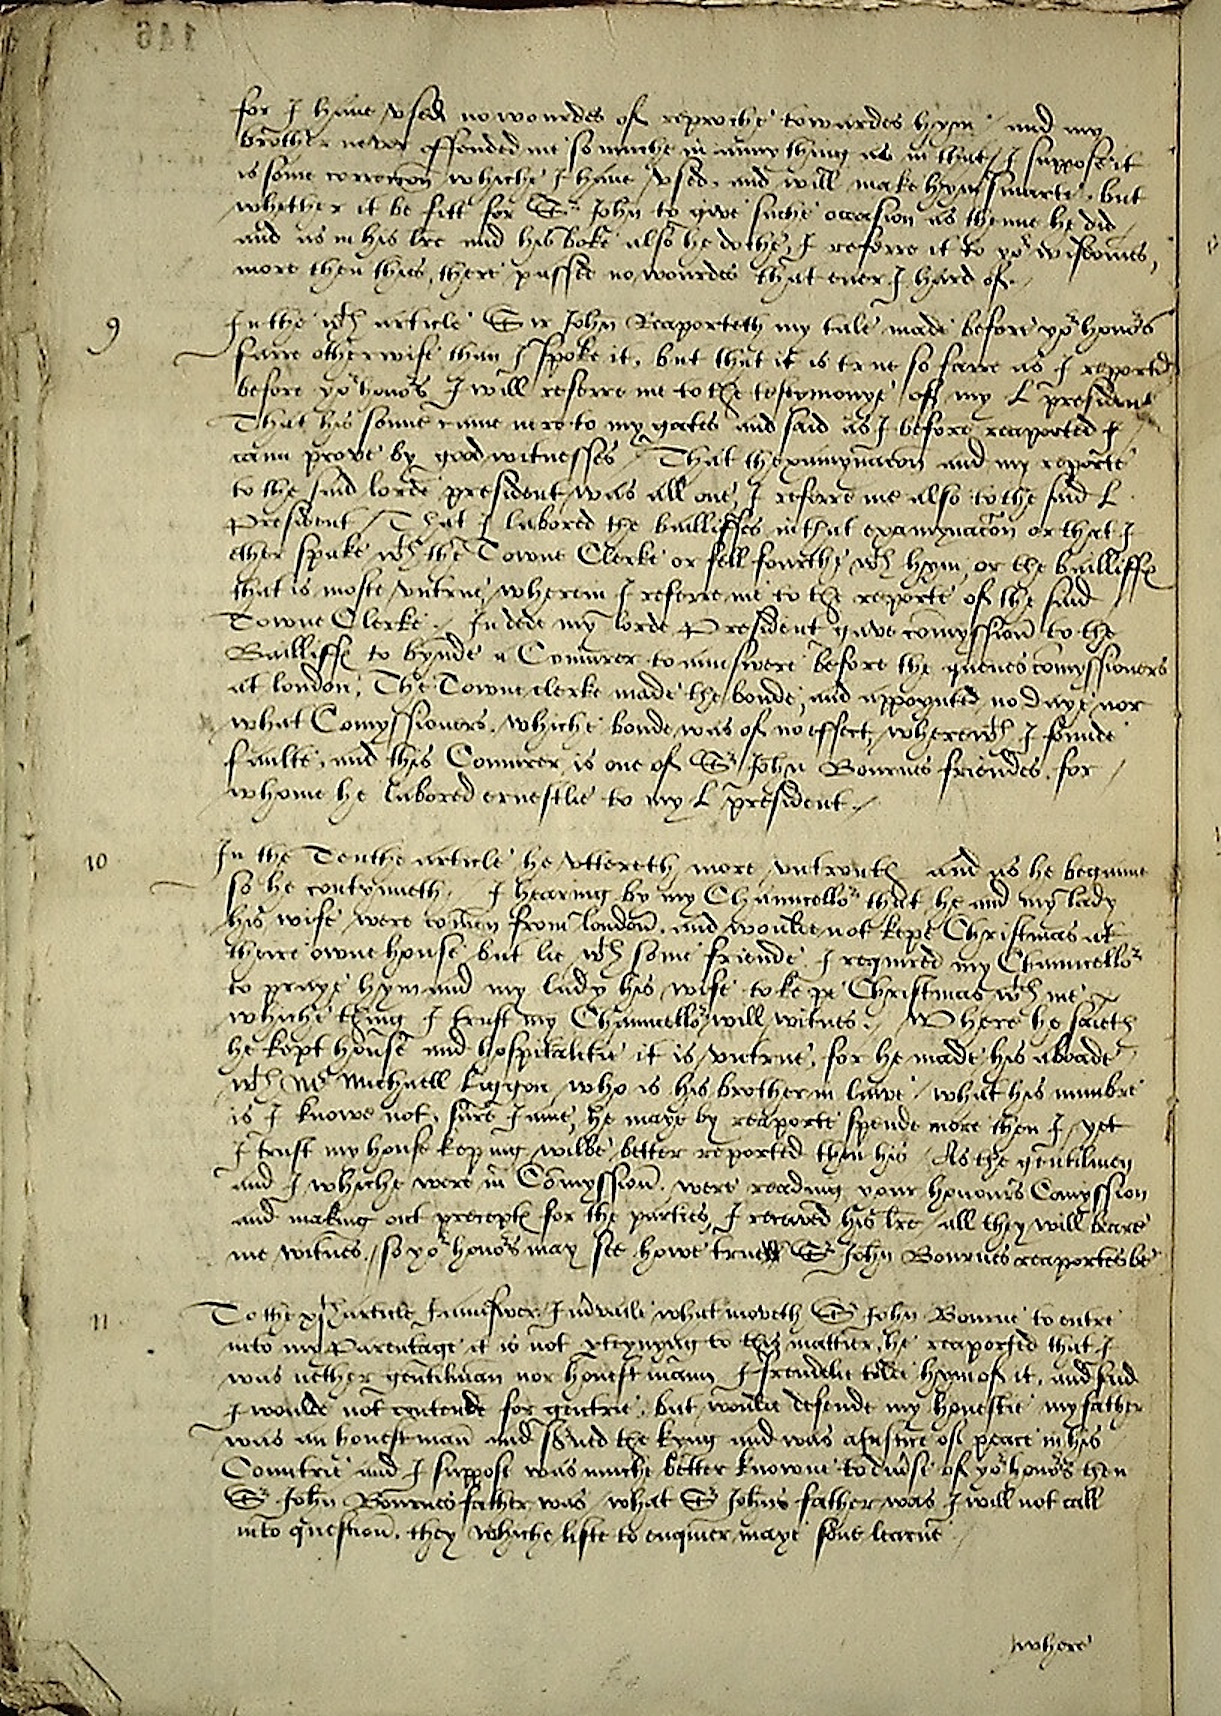 for I haue vsed no wourdes of reproche towardes hym / and my
brother never offended me so muche in anny thing as in that / I suppose it
is some correccon whiche I haue vsed. and will make hym smarte. but
whether it be fitt for Sr John to give suche occasion as thenne he did
and as in his lre and his boke also he dothe, I referre it to yor wisdomes,
more then this, there passed no wourdes that ever I hard of.
9 In the ixth article Sir John Reaporteth my tale made before yor honors
farre otherwise than I spoke it. but that it is true so farre as I reported
before yor honors I will referre me to the testymonye of my L president
That his sonne came nere to my gates and said as I before reaported I
cann prove by good witnesses / That thexamynacon and my reporte
to the said lorde president was all one, I referre me also to the said L
President / That I labored the bailliffes in that examynacon or that I
ether spake wth the Towne Clerke or fell fourthe wth hym, or the bailliffes
that is moste vntrue, wherein I referre me to the reporte of the said
Towne Clerke. / In dede my lorde President gave comyssion to the
Bailliffes to bynde a Coniurer to aunswere before the quenes comyssioners
at london, The Towne clerke made the bonde, and appoynted no daye nor
what Comyssioners. whiche bonde was of no effect, wherewth I founde
faulte, and this Coniurer is one of Sr John Bournes friendes. for
whome he labored ernestlie to my L president. /
10 In the Tenthe article he vttereth more vntrouth and as he begane
so he contynueth. I hearing by my Chauncellor that he and my lady
his wife were coman from london. and woulde not kepe Christmas at
theire owne house but lie wth some friende. I required my Chauncellor
to praye hym and my lady his wife to kepe Christmas wth me /
whiche thing I trust my Chauncellor will witnes. / Where he saieth
he kept house and hospitalitie it is vntrue, for he made his aboade
wth Mr Michaell Liggon who is his brother in lawe / what his numbre
is I knowe not, sure I ame, he maye by reaporte spende more then I / yet
I trust my house keping wilbe better reported then his / As the gentilmen
and I whiche were in Comyssion. were reading your honours Comyssion
and making out preceptes for the parties, I receaved his lre / all they will beare
me witnes. / so yor honors may see howe true Sr John Bournes reaportes be
11 To the xjth article I aunswer / I mvaile what moveth Sr John Bourne to entre
into my Parentage it is not pteynyng to this mattier, he reaported that I
was nether gentilman nor honest mann I frendelie tolde hym of it, and said
I woulde not contende for gentrie. but woulde defende my honestie my father
was an honest man and sved the kyng and was a Justice of peace in his
Countrie and I suppose was muche better knowne to diuse of yor honors then
Sr John Bournes father was / what Sr Johns father was I will not call
into question. they whiche liste to enquier maye sone learne
where